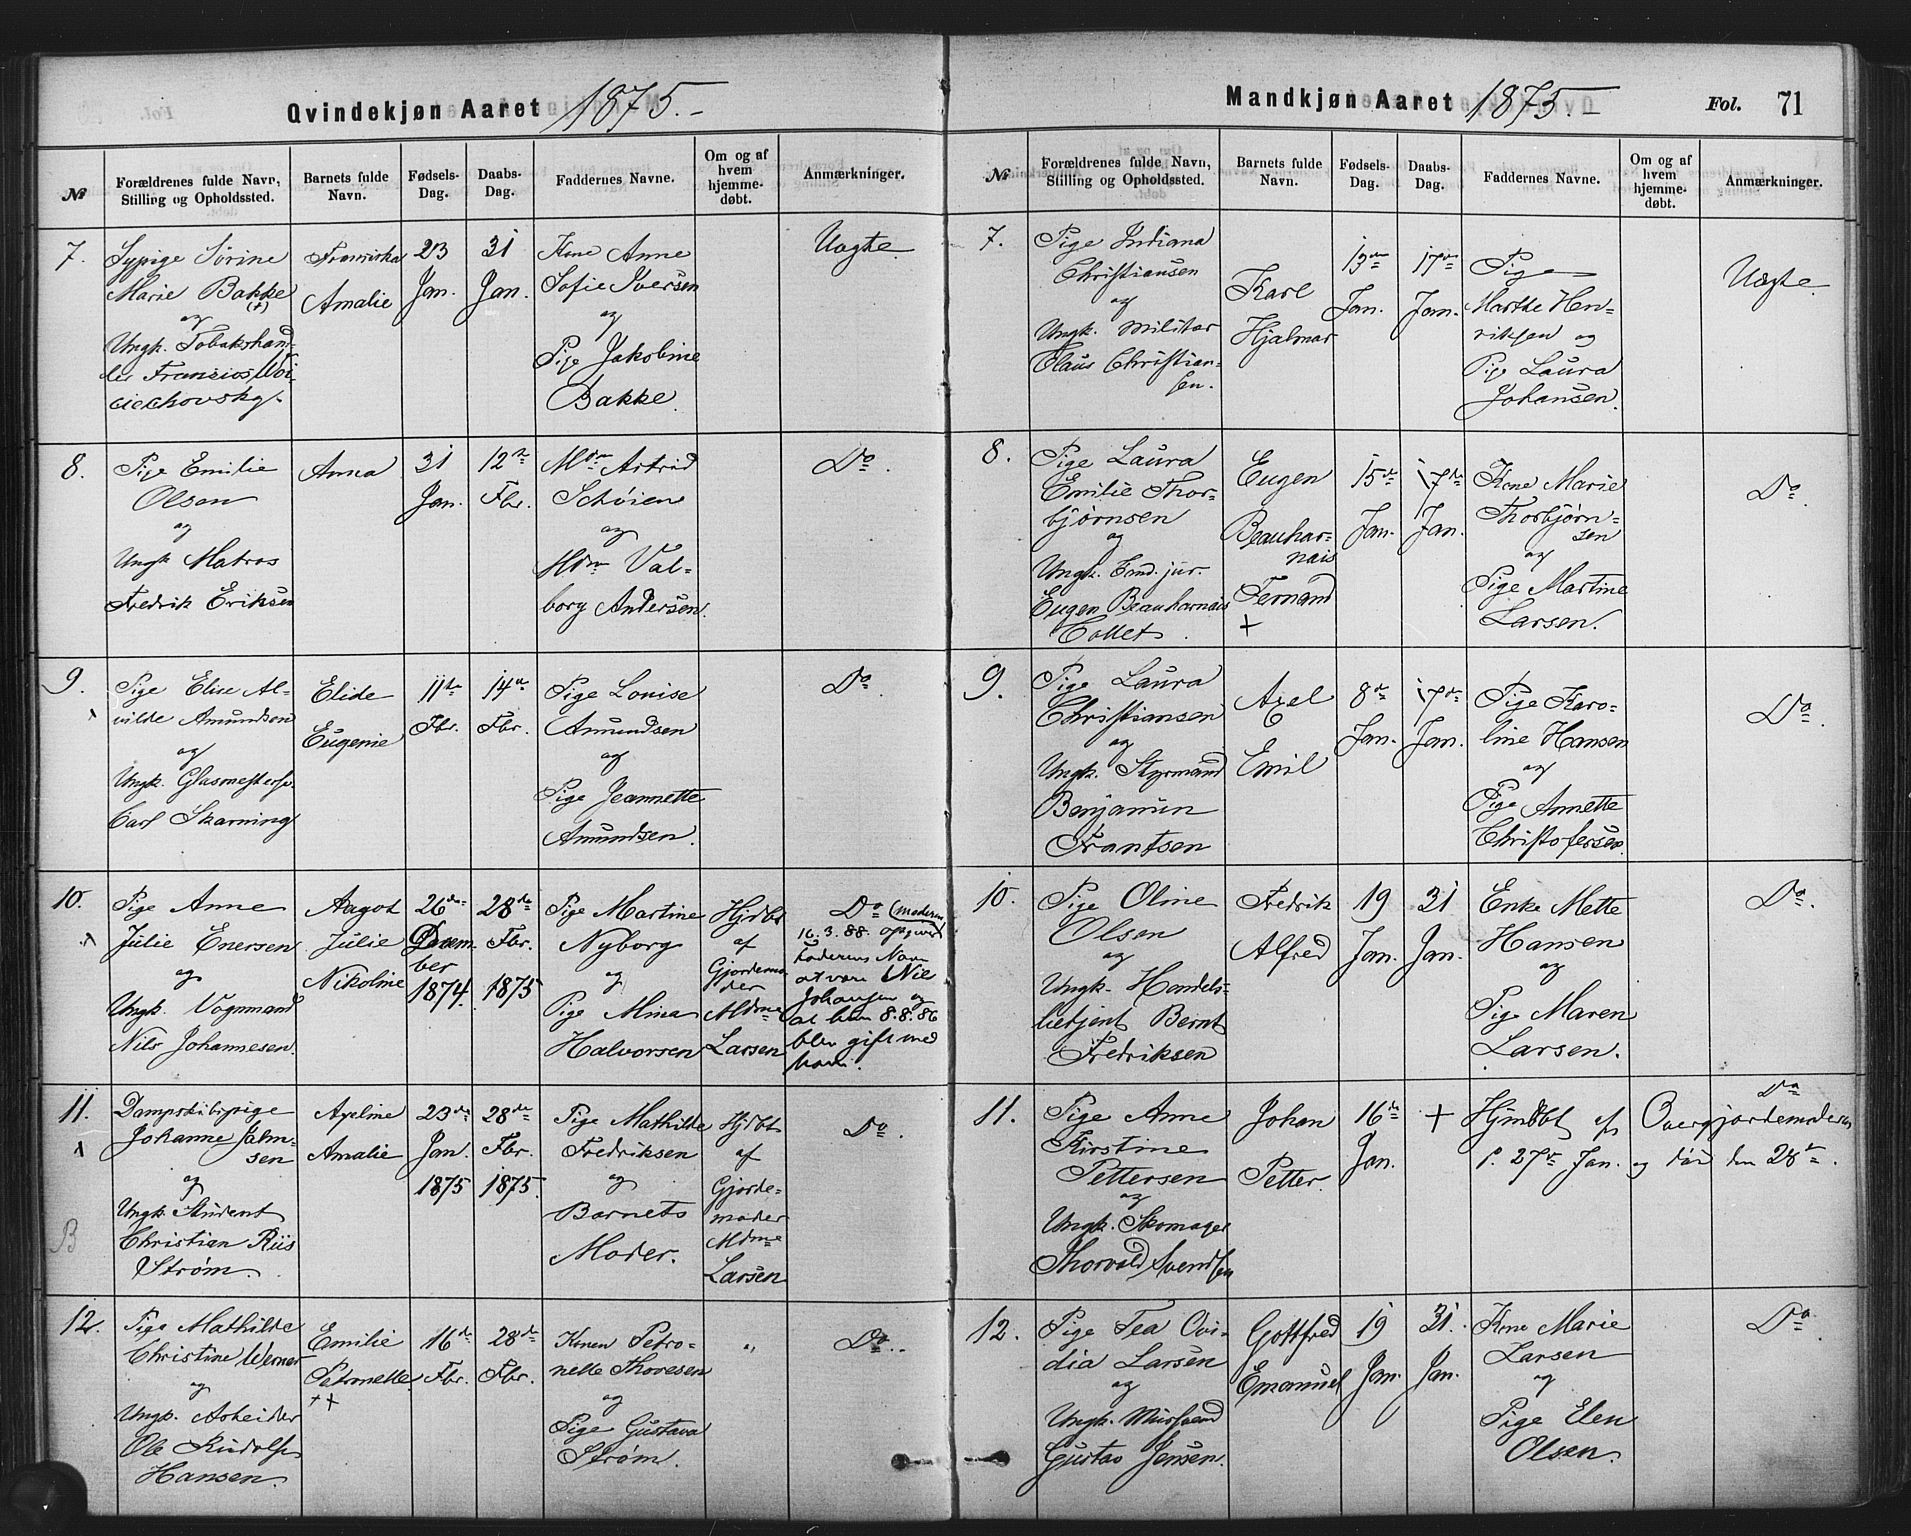 Qvindekjøn Aaret 1875.-
№
Forældrenes fulde Navn,
Stilling og Opholdssted.
Barnets fulde
Navn.
Fødsels-
Dag.
Daabs-
Dag.
Faddernes Navne.
Om og af
hvem
hjemme-
døbt.
Anmærkninger.
7.
Sypige Sørine
Marie Bakke
(+)
og
Ungk. Tobakshand-
ler
Amalie
23
Jan.
31
Jan.
Kone Anne
Sofie Iversen
og
Pige Jakobine
Bakke.
Uægte.
8.
Pige Emilie
Olsen
og
Ungk Matros
Fredrik Eriksen
Anna
31
Jan.
12te
Fbr.
Mdm Astrid
Schøien
og
Mdm Val-
borg Andersen.
Do.
9.
Pige Elise Al-
vilde Amundsen
og
Ungk. Glasmestersv.
Carl Skarning
Elide
Eugenie
11te
Fbr.
14de
Fbr.
Pige Louise
Amundsen
og
Pige Jeannette
Amundsen.
Do.
10.
Pige Anne
Julie Enersen
og
Ungk. Vognmand
Nils Johannesen.
Aagot
Julie
Nikoline
26de
Decem-
ber
1874.
28de
Fbr.
1875
Pige Martine
Nyborg
og
Pige Mina
Halvorsen
Hjdbt
af
Gjordemo
der
Mdme
Larsen
Do (moderen
16.3.88. opgived
Faderens Navn
at være Nils
Johansen og
at hun 8.8.86
blev gift med
ham.
11.
Dampskibspige
Johanne Jahn-
sen
og
Ungk. Student
Christian Riis
Strøm.
B
Axeline
Amalie
23de
Jan.
1875
28de
Fbr.
1875.
Pige Mathilde
Fredriksen
og
Barnets
Moder.
Hjdbt
af
Gjorde-
moder
Mdme
Larsen
Do.
12.
Pige Mathilde
Christine Werner
og
Ungk. Arbeider
Ole Rudolf
Hansen.
Emilie
Petronelle.
++
16de
Fbr.
28de
Fbr.
Konen Petro-
nelle Thoresen
og
Pige Gustava
Strøm.
"
Do.
Mandkjøn Aaret 1875.-
Fol. 71
№
Forældrenes fulde Navn,
Stilling og Opholdssted.
Barnets fulde
Navn.
Fødsels-
Dag.
Daabs-
Dag.
Faddernes Navne.
Om og af
hvem
hjemme-
døbt.
Anmærkninger.
7.
Pige Indiana
Christiansen
og
Ungk. Militær
Olaus Christian-
sen.
Karl
Hjalmar
13de
Jan.
17de
Jan.
Pige
Marthe Hen-
riksen og
Pige Laura
Johansen.
Uægte.
8.
Pige Laura
Emilie Thor-
bjørnsen
og
Ungk. Cand. jur.
Eugen Beauharnais
Collet.
Eugen
Beauhar-
nais
Fernand
+
15de
Jan.
17de
Jan.
Kone Marie
Thorbjørn-
sen
og
Pige Martine
Larsen.
Do
9.
Pige Laura
Christiansen
og
Ungk. Styrmand
Benjamin
Frantsen
Axel
Emil
8de
Jan.
17de
Jan.
Pige Karo-
line Hansen
og
Pige Annette
Christofersen.
Do.
10.
Pige Oline
Olsen
og
Ungk. Handels-
betjent Bernt
Fredriksen
Fredrik
Alfred
19
Jan.
31
Jan.
Enke Mette
Hansen
og
Pige Maren
Larsen.
Do.
11.
Pige Anne
Kirstine
Pettersen
og
Ungk. Skomager
Thorvald Svendsen
Johan
Petter.
16de
Jan.
+
Hjmdbt af Overgjordemoderen
27de Jan. og død den 28de.
Do
12.
Pige Tea Ovi-
dia Larsen
og
Ungk. Mursvend
Gustav Jensen.
Gottfred
Emanuel
19
Jan.
31.
Jan.
Kone Marie
Larsen
og
Pige Elen
Olsen.
Do.